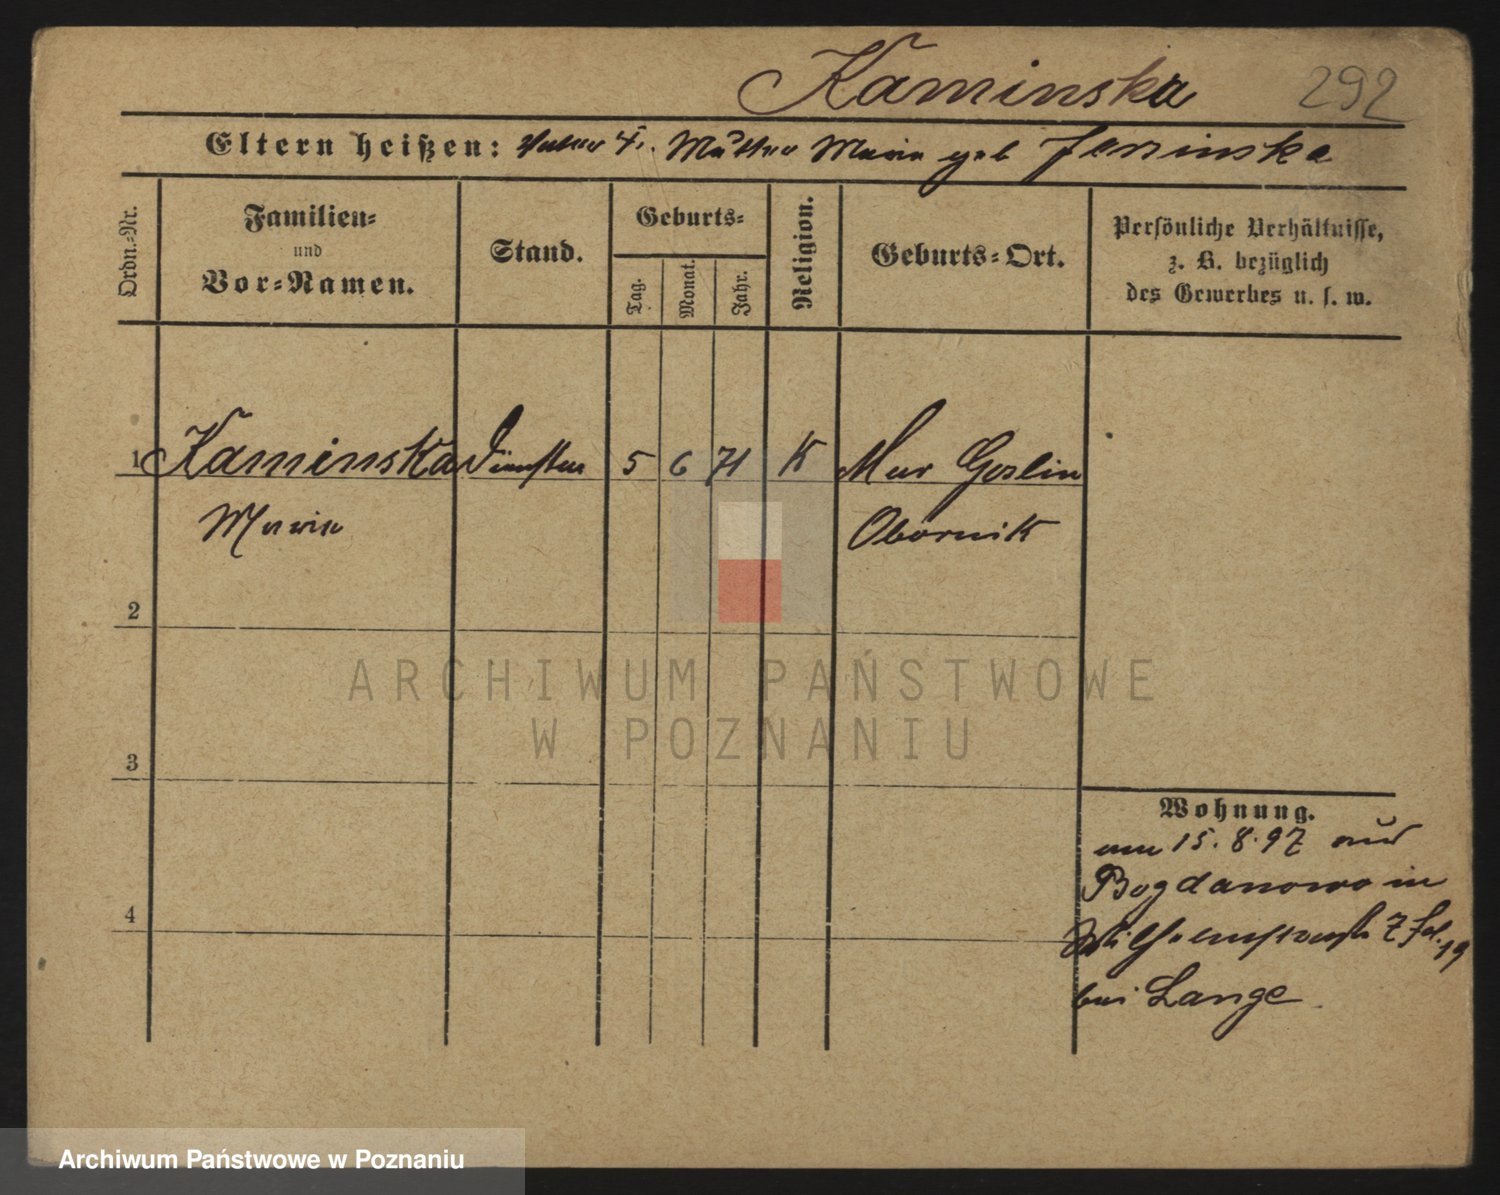 Kaminska 292
Eltern heißen: Vater †. Mutter Marie geb Jerzinska
Ordn.-Nr.
Familien-
und
Vor-Namen.
Stand.
Geburts-
Tag.
Monat.
Jahr.
Religion.
Geburts-Ort.
Persönliche Verhältnisse,
z. B. bezüglich
des Gewerbes u. s. w.
1 Kaminska 5 6 71 K Mur Goslin
Marie Obornik
2
3
Wohnung.
am 15. 8. 97 aus
Bogdanowo in
4
bei Lange
ARCHIWUM PAŃSTWOWE
W POZNANIU
Archiwum Państwowe w Poznaniu